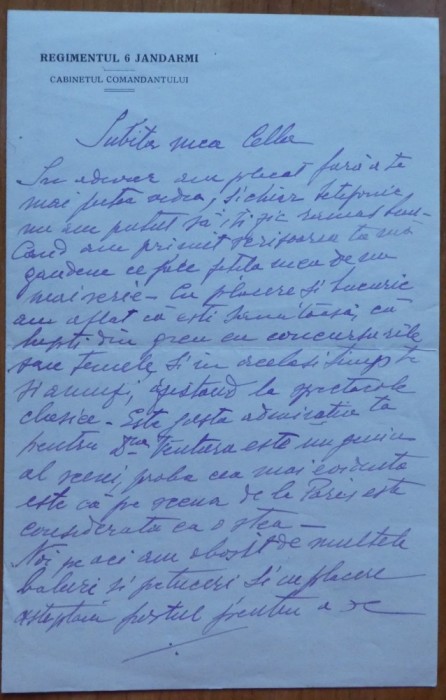 REGIMENTUL 6 JANDARMI
CABINETUL COMANDANTULUI
Iubita mea Cella
In adever am plecat fara a te
mai putea vedea, si chiar telefonic
nu am putut să iti zic ramas bun –
Cand am primit scrisoarea ta mă
gandeam ce face fetita mea de nu
mai scrie – Cu placere si bucurie
am aflat că esti sanatoasă, că
lupti din greu cu concursurile
sau temele, si in acelasi timp te
si amuzi, asistand la spectacole
clasice – Este justa admiratia ta
pentru Dna Ventura este un geniu
al scenei, proba cea mai evidenta
este că pe scena de la Paris este
considerata ca o stea –
Noi pe aci am obosit de multele
baluri si petreceri si cu placere
asteptam postul pentru a se